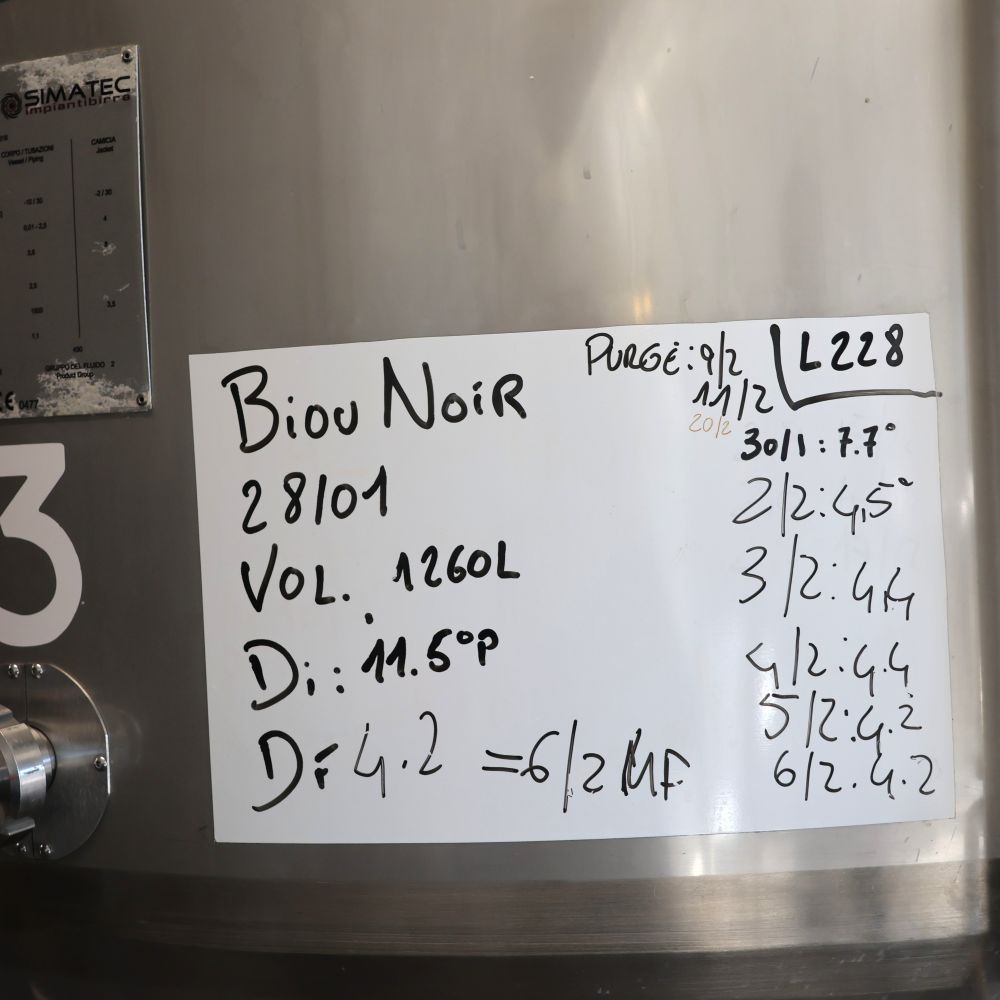 SIMATEC
impiantibirra
CORPO / TUBAZIONI
Vessel / Piping
CAMICIA
Jacket
-10 / 30
-2 / 30
4
3,5
2,5
1,1
490
GRUPPO DEL FLUIDO 2
Product Group
CE 0477
3
PURGE: 9/2
11/2
20/2
L228
Biou NoiR
28/01
VOL. 1260L
Di: 11.5°P
DF 4.2 = 6/2 MF
30/1: 7.7°
2/2: 4,5°
3/2: 4,4
4/2: 4.4
5/2: 4.2
6/2. 4.2